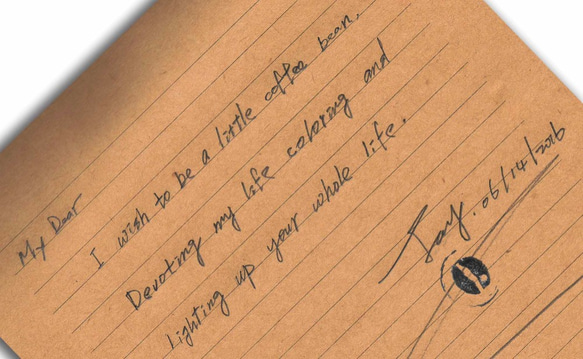 My Dear
I wish to be a little coffee bean,
Devoting my life coloring and
Lighting up your whole life.
Jay. 06/14/2016